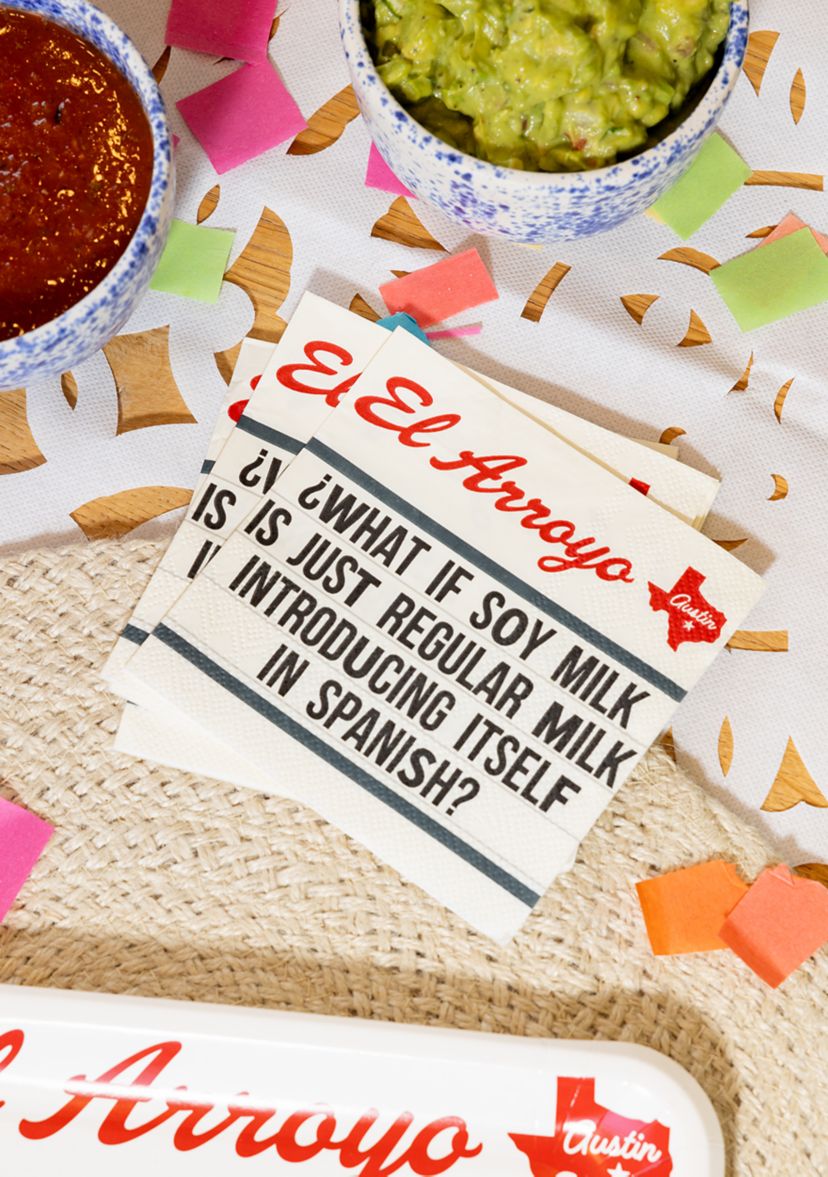 El
El Arroyo
Austin
¿WHAT IF SOY MILK
IS JUST REGULAR MILK
INTRODUCING ITSELF
IN SPANISH?
IS
Arroyo
Austin